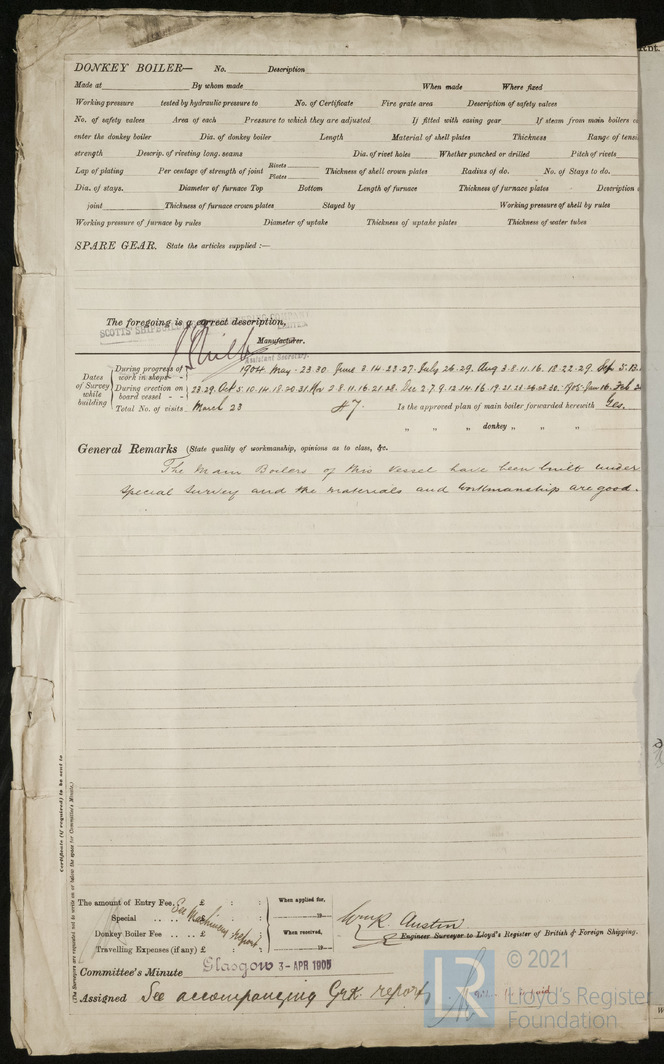 DONKEY BOILER— No. Description
Made at By whom made When made Where fixed
Working pressure tested by hydraulic pressure to No. of Certificate Fire grate area Description of safety valves
No. of safety valves Area of each Pressure to which they are adjusted If fitted with easing gear If steam from main boilers
enter the donkey boiler Dia. of donkey boiler Length Material of shell plates Thickness Range of
strength Descrip. of riveting long. seams Dia. of rivet holes Whether punched or drilled Pitch of rivets
Lap of plating Per centage of strength of joint Rivets Plates Thickness of shell crown plates Radius of do. No. of Stays to do.
Dia. of stays. Diameter of furnace Top Bottom Length of furnace Thickness of furnace plates Description
joint Thickness of furnace crown plates Stayed by Working pressure of shell by rules
Working pressure of furnace by rules Diameter of uptake Thickness of uptake plates Thickness of water tubes
SPARE GEAR. State the articles supplied :—
The foregoing is a correct description,
Manufacturer.
Assistant Secretary.
Dates of Survey while building
During progress of work in shops - - 1904. May. 23. 30. June 3. 14. 23. 27. July 26. 29. Aug 3. 8. 11. 16. 18. 22. 29. Sep. 5. 13.
During erection on board vessel - - 23. 29. Oct 5. 10. 14. 18. 20. 31. Nov 2 8. 11. 16. 21. 28. Dec 2. 7. 9. 12. 14. 16. 19. 21. 23. 26. 28. 30. 1905. Jan 16. Feb
Total No. of visits March 23 47. Is the approved plan of main boiler forwarded herewith Yes.
" " " donkey " " "
General Remarks (State quality of workmanship, opinions as to class, &c.
The Main Boilers of this Vessel have been built under
Special Survey and the materials and workmanship are good.
Certificate (if required) to be sent to
(The Surveyors are requested not to write on or below the space for Committee's Minute.)
The amount of Entry Fee. £ : : When applied for,
Special .. .. £ : : 19
Donkey Boiler Fee .. .. £ : : When received,
Travelling Expenses (if any) £ : : 19
See Machinery report.
Wm R. Austin
Engineer Surveyor to Lloyd's Register of British & Foreign Shipping.
Committee's Minute Glasgow 3-APR 1905
Assigned See accompanying Grk. report
LR © 2021
Lloyd's Register
Foundation